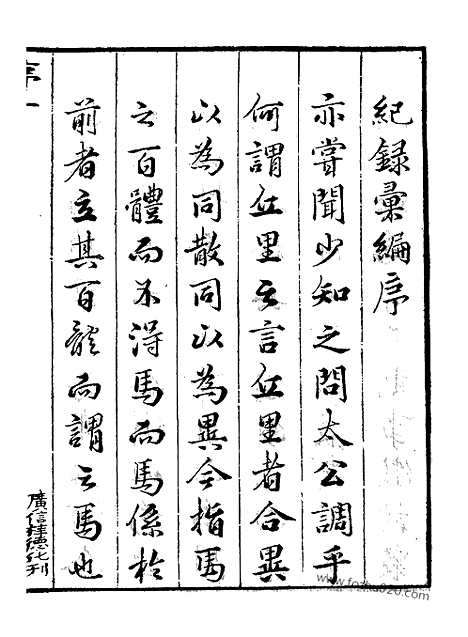 紀録彙編序
亦嘗聞少知之問太公調乎
何謂丘里之言丘里者合異
以為同散同以為異今指馬
之百體而不得馬而馬係於
前者立其百體而謂之馬也
序一
www.fozhu920.com